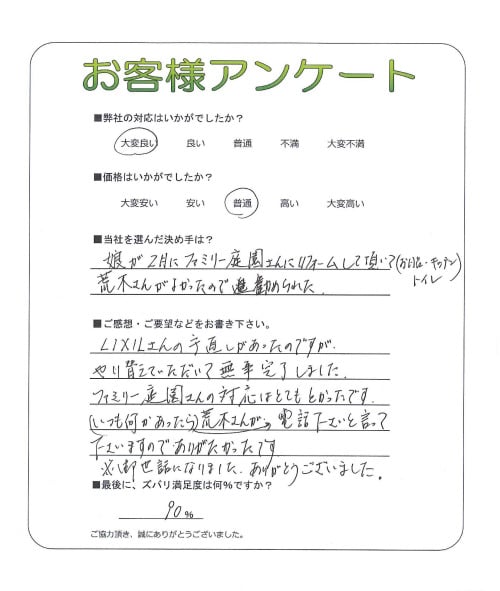 お客様アンケート
■弊社の対応はいかがでしたか？
大変良い 良い 普通 不満 大変不満
■価格はいかがでしたか？
大変安い 安い 普通 高い 大変高い
■当社を選んだ決め手は？
娘が2月にファミリー庭園さんにリフォームして頂いて(お風呂・キッチン
トイレ)
荒木さんがよかったので勧められた.
■ご感想・ご要望などをお書き下さい。
LIXILさんの手直しがあったのですが、
やり替えていただいて無事完了しました.
ファミリー庭園さんの対応はとてもよかったです.
(いつも何かあったら)荒木さんが 電話下さいと言って
下さいますのでありがたかったです
※御世話になりました. ありがとうございました。
■最後に、ズバリ満足度は何％ですか？
90%
ご協力頂き、誠にありがとうございました。